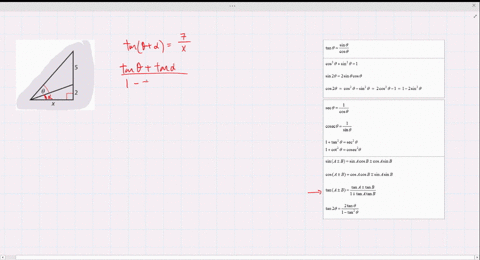 tan(θ+α) = 7/x
tanθ + tanα
1 -
5
2
θ
α
x
tanθ = sinθ/cosθ
cos²θ + sin²θ = 1
sin2θ = 2sinθcosθ
cos2θ = cos²θ − sin²θ = 2cos²θ − 1 = 1 − 2sin²θ
secθ = 1/cosθ
cosecθ = 1/sinθ
1 + tan²θ = sec²θ
1 + cot²θ = cosec²θ
sin(A ± B) = sinAcosB ± cosAsinB
cos(A ± B) = cosAcosB ∓ sinAsinB
tan(A ± B) = tanA ± tanB / 1 ∓ tanAtanB
tan2θ = 2tanθ / 1 − tan²θ